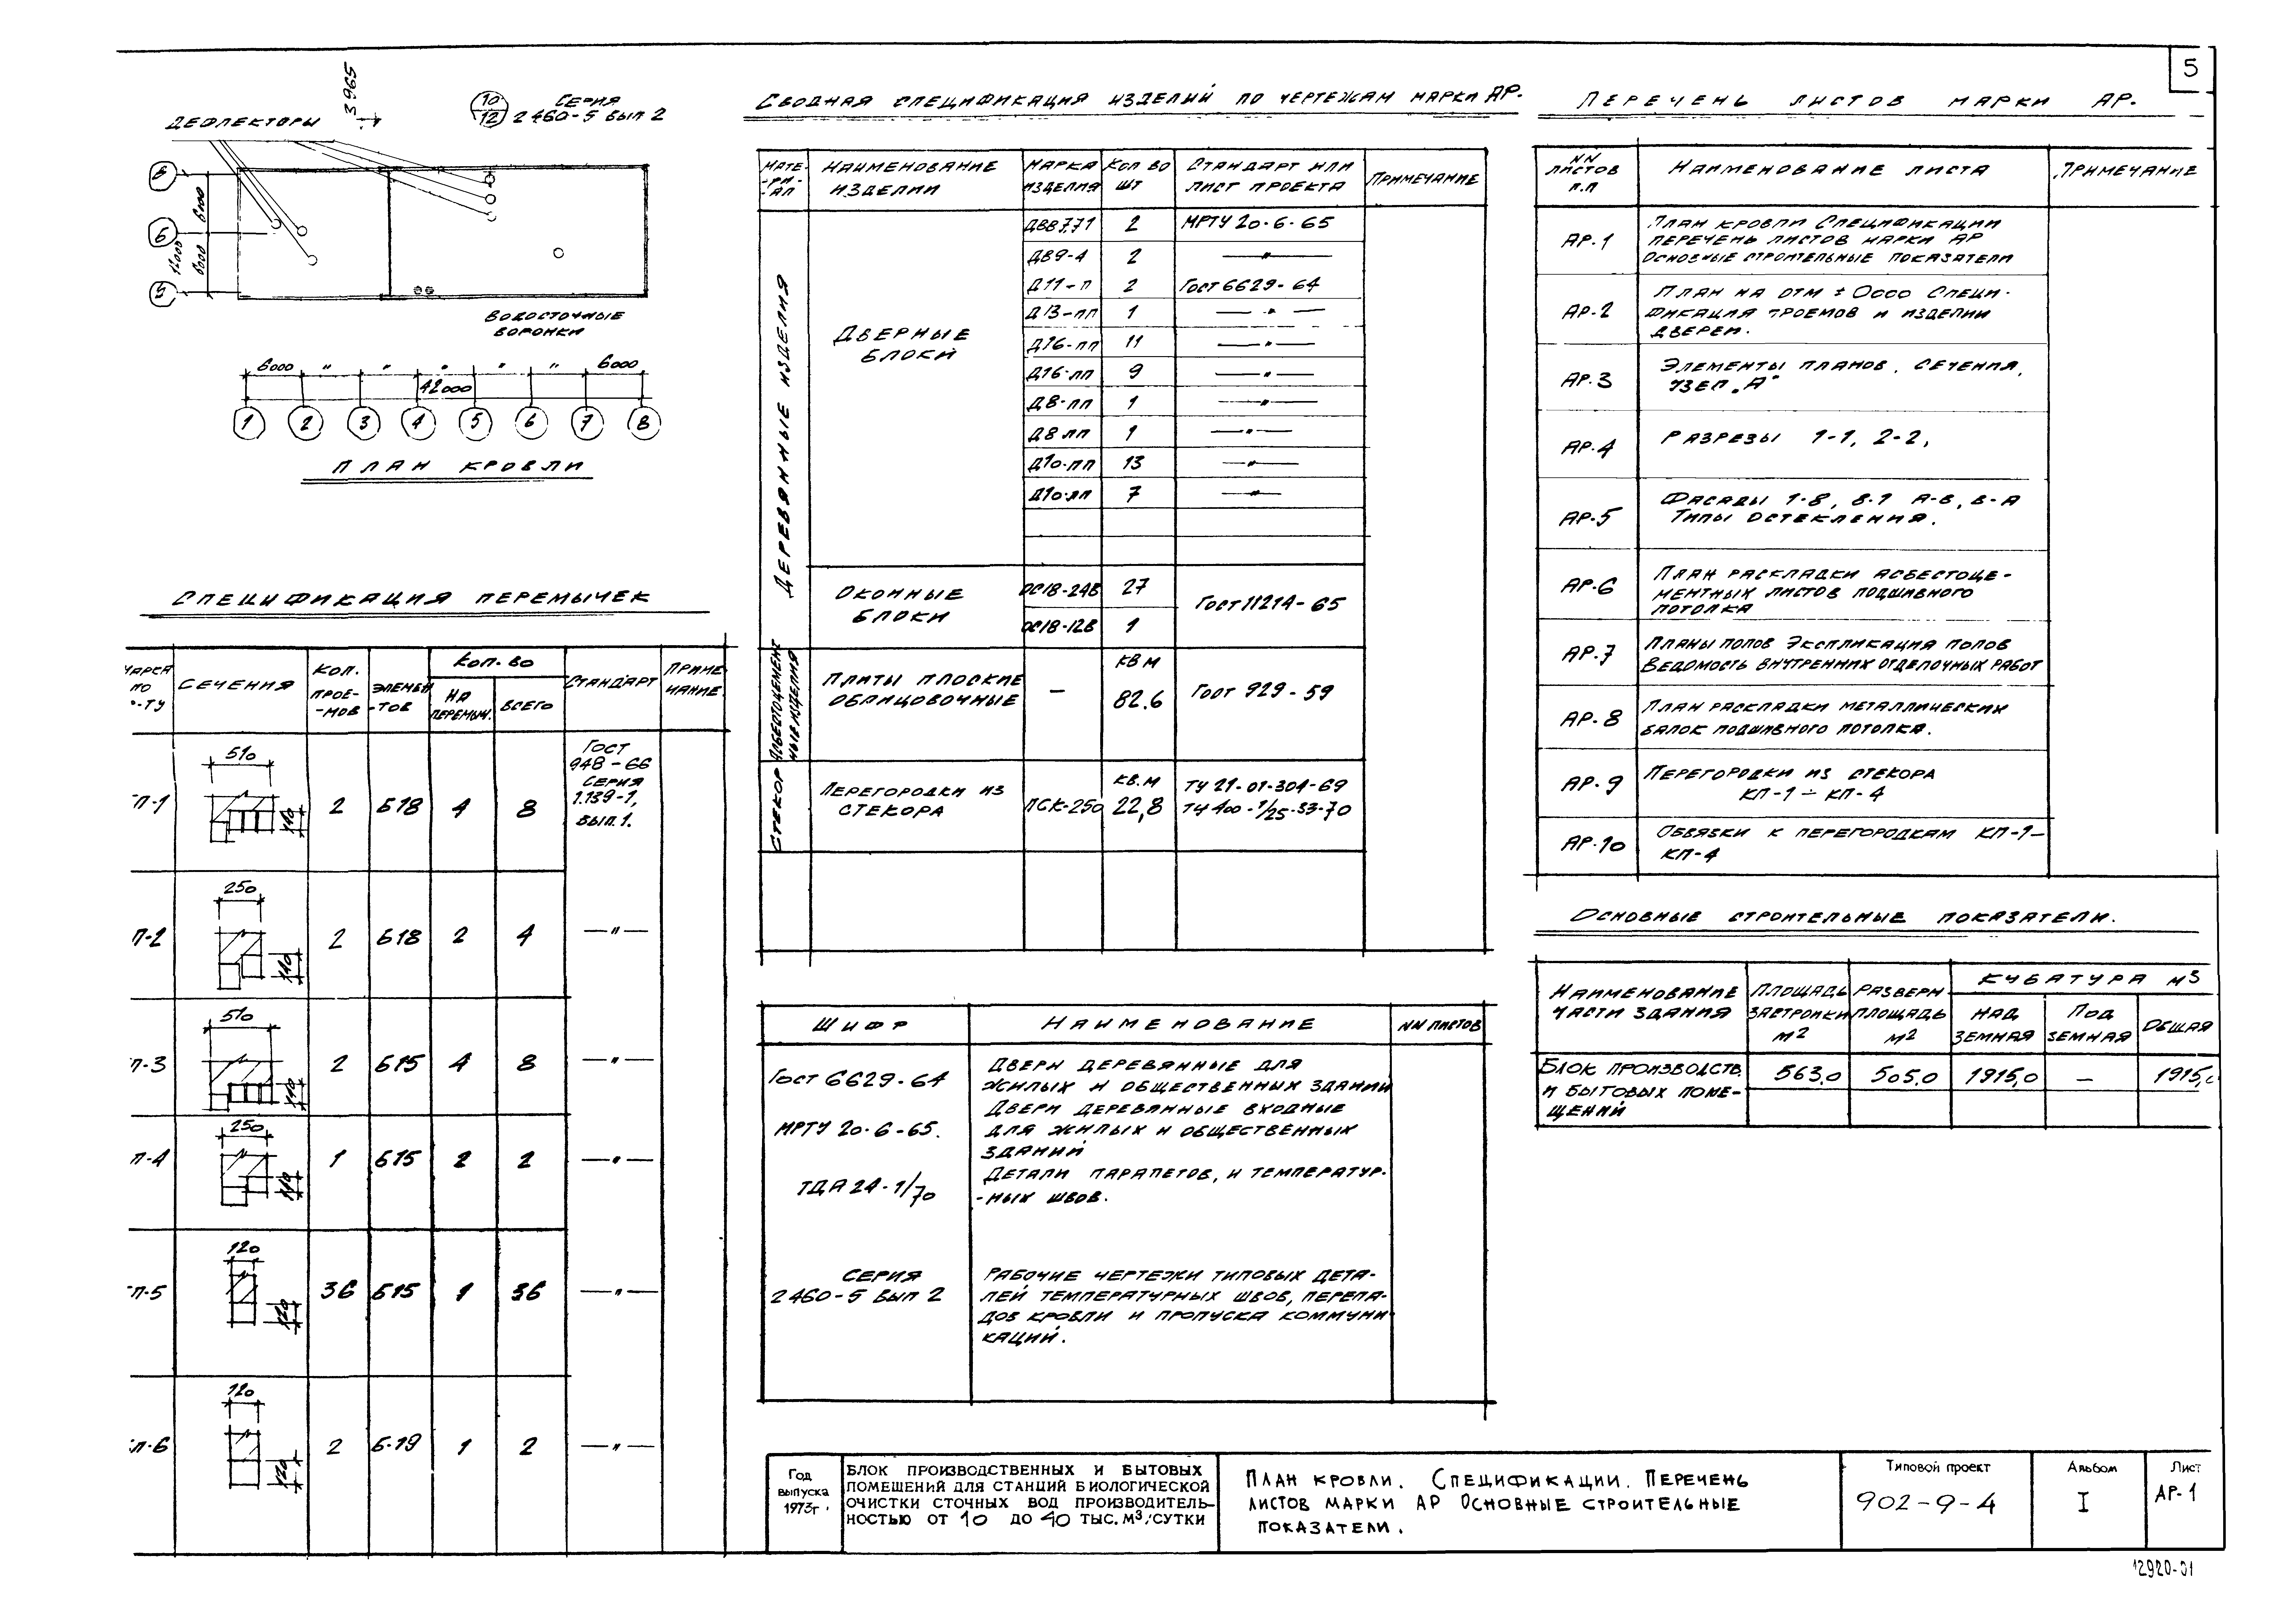 5
ДЕФЛЕКТОРЫ
3965
10
12
СЕРИЯ
2460-5 ВЫП 2
Б
6000
6000
12000
ВОДОСТОЧНЫЕ
ВОРОНКИ
6000 " " " " " 6000
42000
1 2 3 4 5 6 7 8
ПЛАН КРОВЛИ
СПЕЦИФИКАЦИЯ ПЕРЕМЫЧЕК
МАРКА ПО
СЕЧЕНИЯ
КОЛ. ПРОЕ-
-МОВ
ЭЛЕМЕН
-ТОВ
КОЛ. ВО
НА ПЕРЕМЫЧ.
ВСЕГО
СТАНДАРТ
ПРИМЕ
ЧАНИЕ
П-1 510 140 2 Б18 4 8
ГОСТ
948-66
СЕРИЯ
1.139-1,
ВЫП.1.
П-2 250 140 2 Б18 2 4 —"—
П-3 510 140 2 Б15 4 8 —"—
П-4 250 140 1 Б15 2 2 —"—
П-5 120 36 Б15 1 36 —"—
П-6 120 2 Б-19 1 2 —"—
СВОДНАЯ СПЕЦИФИКАЦИЯ ИЗДЕЛИЙ ПО ЧЕРТЕЖАМ МАРКИ АР.
МАТЕ-
-РИ-
-АЛ
НАИМЕНОВАНИЕ
ИЗДЕЛИИ
МАРКА
ИЗДЕЛИЯ
КОЛ ВО
ШТ
СТАНДАРТ ИЛИ
ЛИСТ ПРОЕКТА
ПРИМЕЧАНИЕ
ДЕРЕВЯННЫЕ ИЗДЕЛИЯ
ДВЕРНЫЕ
БЛОКИ
2 МРТУ 20-6-65
ДВ9-4 2 —"—
Д11-П 2 ГОСТ 6629-64
Д13-ПП 1 —"—
Д16-ПП 11 —"—
Д16-ЛП 9 —"—
Д8-ПП 1 —"—
Д8 ЛП 1 —"—
Д10-ПП 13 —"—
Д10-ЛП 7 —"—
ОКОННЫЕ
БЛОКИ
ОС18-24В 27
ГОСТ 11214-65
ОС18-12В 1
АСБЕСТОЦЕМЕНТ
НЫЕ ИЗДЕЛИЯ
ПЛИТЫ ПЛОСКИЕ
ОБЛИЦОВОЧНЫЕ
—
КВ М
82.6
ГОСТ 929-59
СТЕКОР
ПЕРЕГОРОДКИ ИЗ
СТЕКОРА
ПСК-250
КВ.М
22,8
ТУ 21-01-304-69
ТУ 400-1/25-33-70
ШИФР НАИМЕНОВАНИЕ NN ЛИСТОВ
ГОСТ 6629-64
ДВЕРИ ДЕРЕВЯННЫЕ ДЛЯ
ЖИЛЫХ И ОБЩЕСТВЕННЫХ ЗДАНИЙ
МРТУ 20-6-65.
ДВЕРИ ДЕРЕВЯННЫЕ ВХОДНЫЕ
ДЛЯ ЖИЛЫХ И ОБЩЕСТВЕННЫХ
ЗДАНИЙ
ТДА 24-1/70
ДЕТАЛИ ПАРАПЕТОВ, И ТЕМПЕРАТУР-
-НЫХ ШВОВ.
СЕРИЯ
2460-5 ВЫП 2
РАБОЧИЕ ЧЕРТЕЖИ ТИПОВЫХ ДЕТА-
ЛЕЙ ТЕМПЕРАТУРНЫХ ШВОВ, ПЕРЕПА-
ДОВ КРОВЛИ И ПРОПУСКА КОММУНИ
КАЦИЙ.
ПЕРЕЧЕНЬ ЛИСТОВ МАРКИ АР.
NN
ЛИСТОВ
П.П
НАИМЕНОВАНИЕ ЛИСТА
ПРИМЕЧАНИЕ
АР-1
ПЛАН КРОВЛИ СПЕЦИФИКАЦИИ
ПЕРЕЧЕНЬ ЛИСТОВ МАРКИ АР
ОСНОВНЫЕ СТРОИТЕЛЬНЫЕ ПОКАЗАТЕЛИ
АР-2
ПЛАН НА ОТМ ± 0000 СПЕЦИ-
ФИКАЦИЯ ПРОЕМОВ И ИЗДЕЛИИ
ДВЕРЕЙ.
АР-3
ЭЛЕМЕНТЫ ПЛАНОВ. СЕЧЕНИЯ,
УЗЕЛ „А"
АР-4
РАЗРЕЗЫ 1-1, 2-2,
АР-5
ФАСАДЫ 1-8, 8-1 А-В, В-А
ТИПЫ ОСТЕКЛЕНИЯ.
АР-6
ПЛАН РАСКЛАДКИ АСБЕСТОЦЕ-
МЕНТНЫХ ЛИСТОВ ПОДШИВНОГО
ПОТОЛКА
АР-7
ПЛАНЫ ПОЛОВ ЭКСПЛИКАЦИЯ ПОЛОВ
ВЕДОМОСТЬ ВНУТРЕННИХ ОТДЕЛОЧНЫХ РАБОТ
АР-8
ПЛАН РАСКЛАДКИ МЕТАЛЛИЧЕСКИХ
БАЛОК ПОДШИВНОГО ПОТОЛКА.
АР-9
ПЕРЕГОРОДКИ ИЗ СТЕКОРА
КП-1 ÷ КП-4
АР-10
ОБВЯЗКИ К ПЕРЕГОРОДКАМ КП-1—
КП-4
ОСНОВНЫЕ СТРОИТЕЛЬНЫЕ ПОКАЗАТЕЛИ.
НАИМЕНОВАНИЕ
ЧАСТИ ЗДАНИЯ
ПЛОЩАДЬ
ЗАСТРОЙКИ
М2
РАЗВЕРН
ПЛОЩАДЬ
М2
КУБАТУРА М3
НАД
ЗЕМНАЯ
ПОД
ЗЕМНАЯ
ОБЩАЯ
БЛОК ПРОИЗВОДСТВ.
И БЫТОВЫХ ПОМЕ-
ЩЕНИЙ
563,0 505,0 1915,0 — 1915,0
Год
выпуска
1973г.
БЛОК ПРОИЗВОДСТВЕННЫХ И БЫТОВЫХ
ПОМЕЩЕНИЙ ДЛЯ СТАНЦИЙ БИОЛОГИЧЕСКОЙ
ОЧИСТКИ СТОЧНЫХ ВОД ПРОИЗВОДИТЕЛЬ-
НОСТЬЮ ОТ 10 ДО 40 ТЫС. М3/СУТКИ
ПЛАН КРОВЛИ. СПЕЦИФИКАЦИИ. ПЕРЕЧЕНЬ
ЛИСТОВ МАРКИ АР ОСНОВНЫЕ СТРОИТЕЛЬНЫЕ
ПОКАЗАТЕЛИ.
Типовой проект
902-9-4
Альбом
I
Лист
АР-1
12920-01